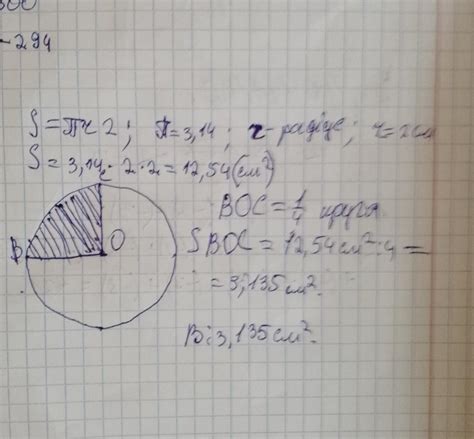 - 294
S = πr2; π = 3,14; r - радіус; r = 2 см
S = 3,14 · 2 · 2 = 12,54 (см²)
C
BOC = 1/4 круга
B
O
S BOC = 12,54 см² : 4 =
= 3,135 см².
В: 3,135 см².